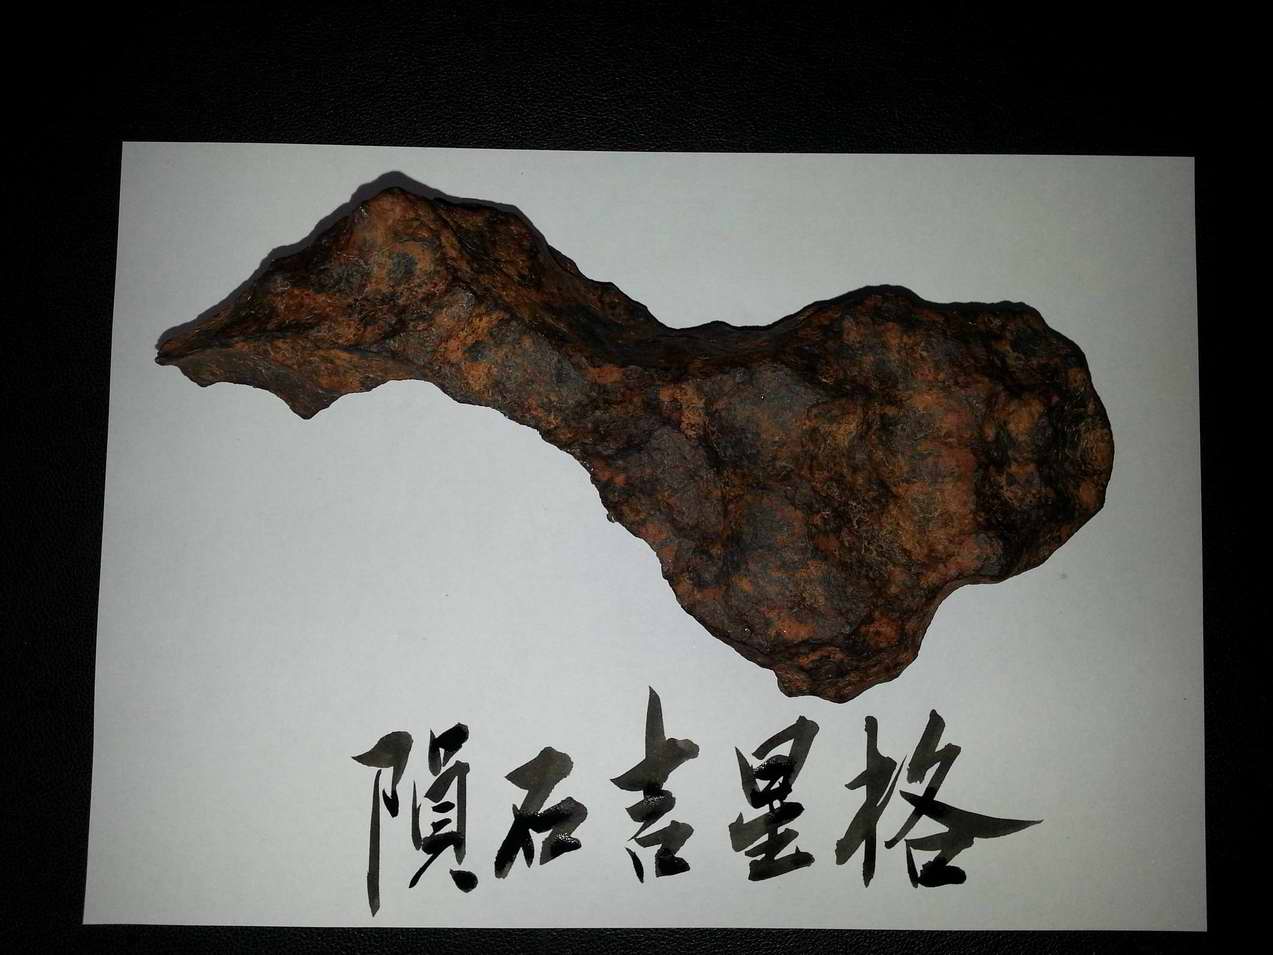 隕石吉星格